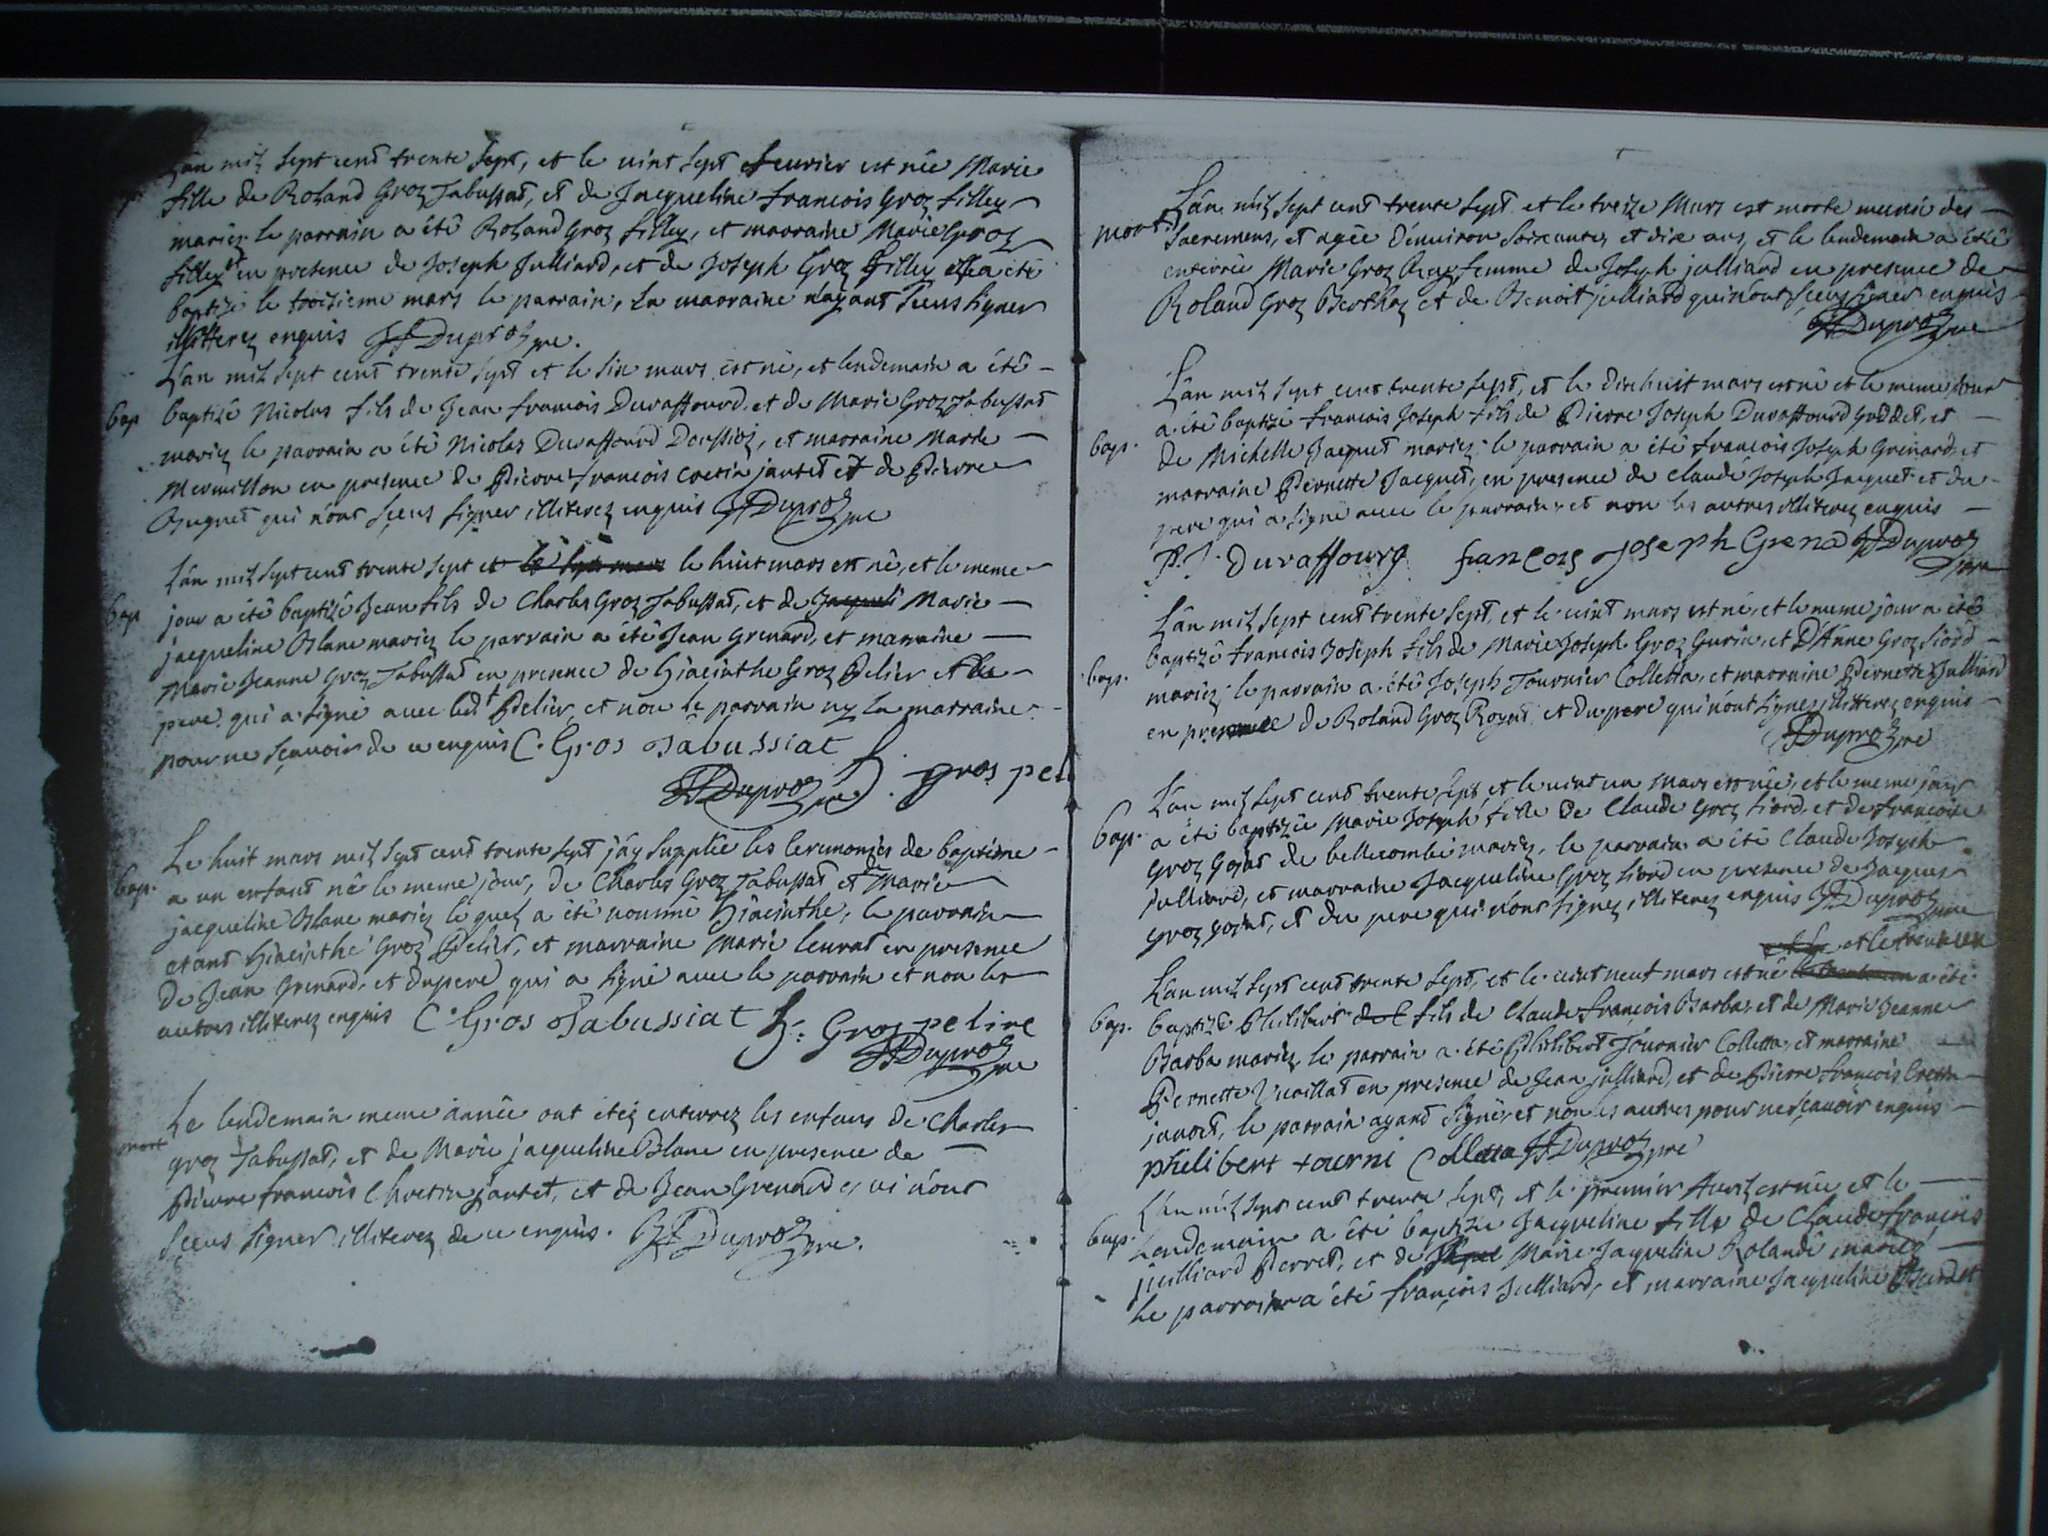 Lan mil sept cent trente sept, et le vint sept feuvrier est née Marie
fille de Roland Groz Jabussat, et de Jacqueline francois Groz filley
mariez le parrain a été Roland Groz filley, et marraine Marie Groz
filley en presence de Joseph Julliard, et de Joseph Groz filley elle a été
baptize le troisieme mars le parrain, La marraine nayant sceus signer
illitterez enquis JFDuproz pre.
Lan mil sept cent trente sept et le six mars est né, et lendemain a été
bap baptizé Nicolas fils de Jean francois Duraffourd et de Marie Groz Jabussat
mariez le parrain a été Nicolas Duraffourd Doussioz, et marraine Marie
Mermillon en presence de Pierre francois cretin jantet et de Pierre
Buguet qui n'ont sceus signer illiterez enquis JFDuproz pre
Lan mil sept cent trente sept et le sept mars le huit mars est né, et le meme
bap jour a été baptizé Jean fils de Charles Groz Jabussat, et de Jacqueli Marie
jacqueline Blanc mariez le parrain a été Jean Grenard, et marraine
Marie Jeanne Groz Jabussat en presence de Hiacinthe Groz Pelier et du
pere qui a signé avec led Pelier et non le parrain ny la marraine
pour ne sçavoir de ce enquis C. Gros Jabussiat
JFDuproz pre h. gros pel
Le huit mars mil sept cent trente sept j'ay supplée les ceremonies de baptême
bap. a un enfant né le meme jour, de Charles Groz Jabussat et de Marie
jacqueline Blanc mariez le quel a été nommé Hiacinthe, le parrain
etant Hiacinthe Groz Pelier, et marraine Marie leurat en presence
de Jean Grenard, et du pere qui a signé avec le parrain et non les
autres illiterez enquis C. Gros Jabussiat h. Gros peline
JFDuproz pre
Le lendemain meme année ont étéz enterrez les enfans de Charles
mort groz Jabussat, et de Marie jacqueline Blanc en presence de
Pierre francois Chretin jantet, et de Jean Grenard qui n'ont
sceus signer illiterez de ce enquis. JFDuproz pre.
Lan mil sept cent trente sept et le treize Mars est morte munie des
mort. Sacremens, et agée d'environ soixante, et dix ans, et le lendemain a été
enterrée Marie Groz Roy femme de Joseph julliard en presence de
Roland Groz Berthoz et de Benoit julliard qui n'ont sceus signer enquis
JFDuproz pre
Lan mil sept cent trente sept, et le dix huit mars est né et le meme jour
a été baptizé francois Joseph fils de Pierre Joseph Duraffourd Goddet, et
bap. de Michelle Jacquet mariez le parrain a été francois Joseph Grenard, et
marraine Pernette Jacquet, en presence de Claude Joseph Jacquet et du
pere qui a signé avec le parrain, et non les autres illiterez enquis
P.J. Duraffourg francois Joseph Grena JFDuproz
pre
Lan mil sept cent trente sept, et le vint mars est né, et le meme jour a été
baptizé francois Joseph fils de Marie Joseph Groz Gurin, et D'Anne Groz fiord
bap. mariez le parrain a été Joseph Tournier Colletta, et marraine Pernette Julliard
en presence de Roland Groz Roynt et du pere qui n'ont signez illitterez enquis
JFDuproz pre
Lan mil sept cent trente sept et le vint un Mars est née, et le meme jour
bap. a été baptizée Marie Joseph fille de Claude Groz fiord, et de francoise
Groz Gojat de bellecombe mariez, le parrain a été Claude Joseph
Julliard, et marraine Jacqueline Groz fiord en presence de Jacques
Groz gojat, et du pere qui n'ont signez illiterez enquis JFDuproz pre
et le trente un
Lan mil sept cent trente sept, et le vint neuf mars est né a été
bap. baptizé Philibert fils de Claude françois Barba, et de Marie Jeanne
Barba mariez, le parrain a été Philibert Tournier Colletta, et marraine
Pernette Vuaillat en presence de Jean julliard, et de Pierre françois Cretin
janoet, le parrain ayant signé, et non les autres pour ne sçavoir enquis
philibert tourni Colleta JFDuproz pre
Lan mil sept cent trente sept, et le premier Avril est née et le
bap. Lendemain a été baptizée Jacqueline fille de Claude françois
juilliard Perret, et de Marie Jaqueline Rolande mariez
Le parrain a été françois Julliard, et marraine Jacqueline Burdet